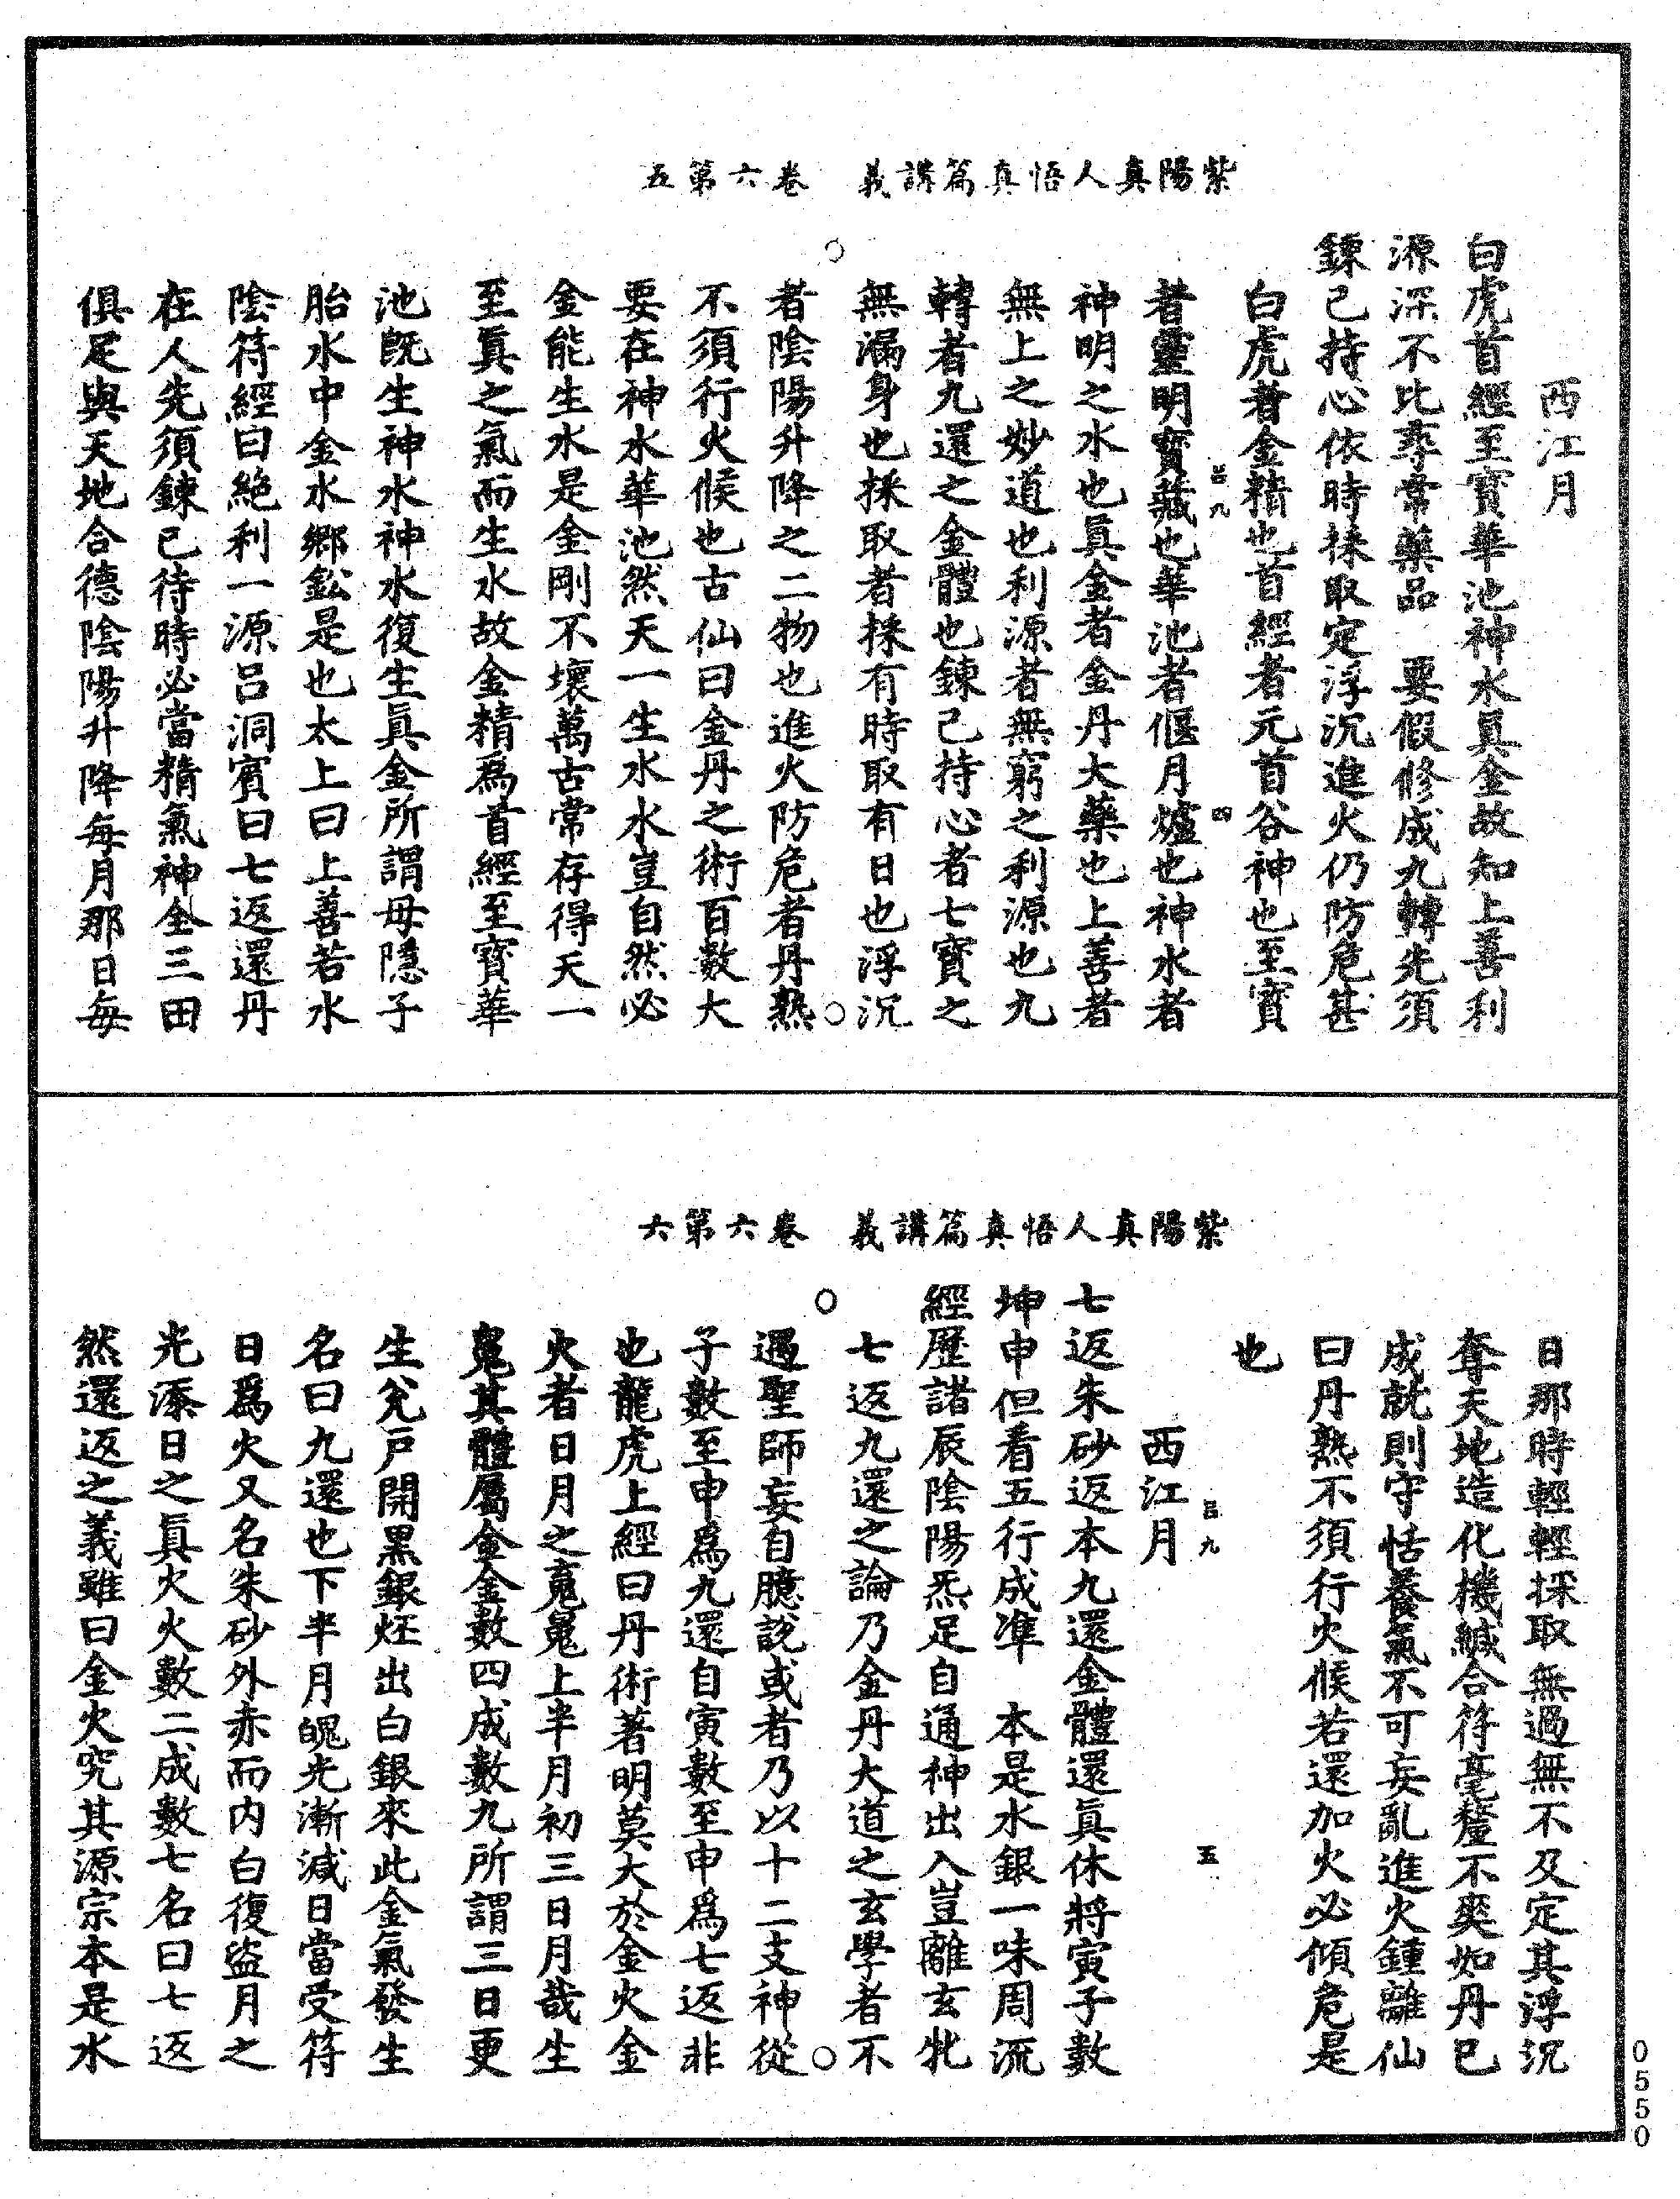 紫陽真人悟真篇講義　卷六第五
西江月
白虎首經至寶華池神水眞金故知上善利
源深不比尋常藥品　要假修成九轉先須
鍊己持心依時採取定浮沉進火仍防危甚
白虎者金精也首經者元首谷神也至寶
者靈明寶藏也華池者偃月爐也神水者
神明之水也眞金者金丹大藥也上善者
無上之妙道也利源者無窮之利源也九
轉者九還之金體也鍊己持心者七寶之
無漏身也採取者採有時取有日也浮沉
者陰陽升降之二物也進火防危者丹熟
不須行火候也古仙曰金丹之術百數大
要在神水華池然天一生水水豈自然必
金能生水是金剛不壞萬古常存得天一
至眞之氣而生水故金精爲首經至寶華
池旣生神水神水復生眞金所謂母隱子
胎水中金水鄉鈆是也太上曰上善若水
陰符經曰絶利一源呂洞賓曰七返還丹
在人先須鍊己待時必當精氣神全三田
俱足與天地合德陰陽升降每月那日每
九
四
紫陽真人悟真篇講義　卷六第六
日那時輕輕採取無過無不及定其浮沉
奪天地造化機緘合符毫釐不爽如丹已
成就則守恬養氣不可妄亂進火鍾離仙
曰丹熟不須行火候若還加火必傾危是
也
西江月
七返朱砂返本九還金體還眞休將寅子數
坤申但看五行成準　本是水銀一味周流
經歷諸辰陰陽炁足自通神出入豈離玄牝
七返九還之論乃金丹大道之玄學者不
遇聖師妄自臆說或者乃以十二支神從
子數至申爲九還自寅數至申爲七返非
也龍虎上經曰丹術著明莫大於金火金
火者日月之䰟䰟上半月初三日月哉生
䰟其體屬金金數四成數九所謂三日更
生兊戸開黑銀炷出白銀來此金氣發生
名曰九還也下半月魄光漸減日當受符
日爲火又名朱砂外赤而内白復盜月之
光添日之眞火火數二成數七名曰七返
然還返之義雖曰金火究其源宗本是水
九
五
0550